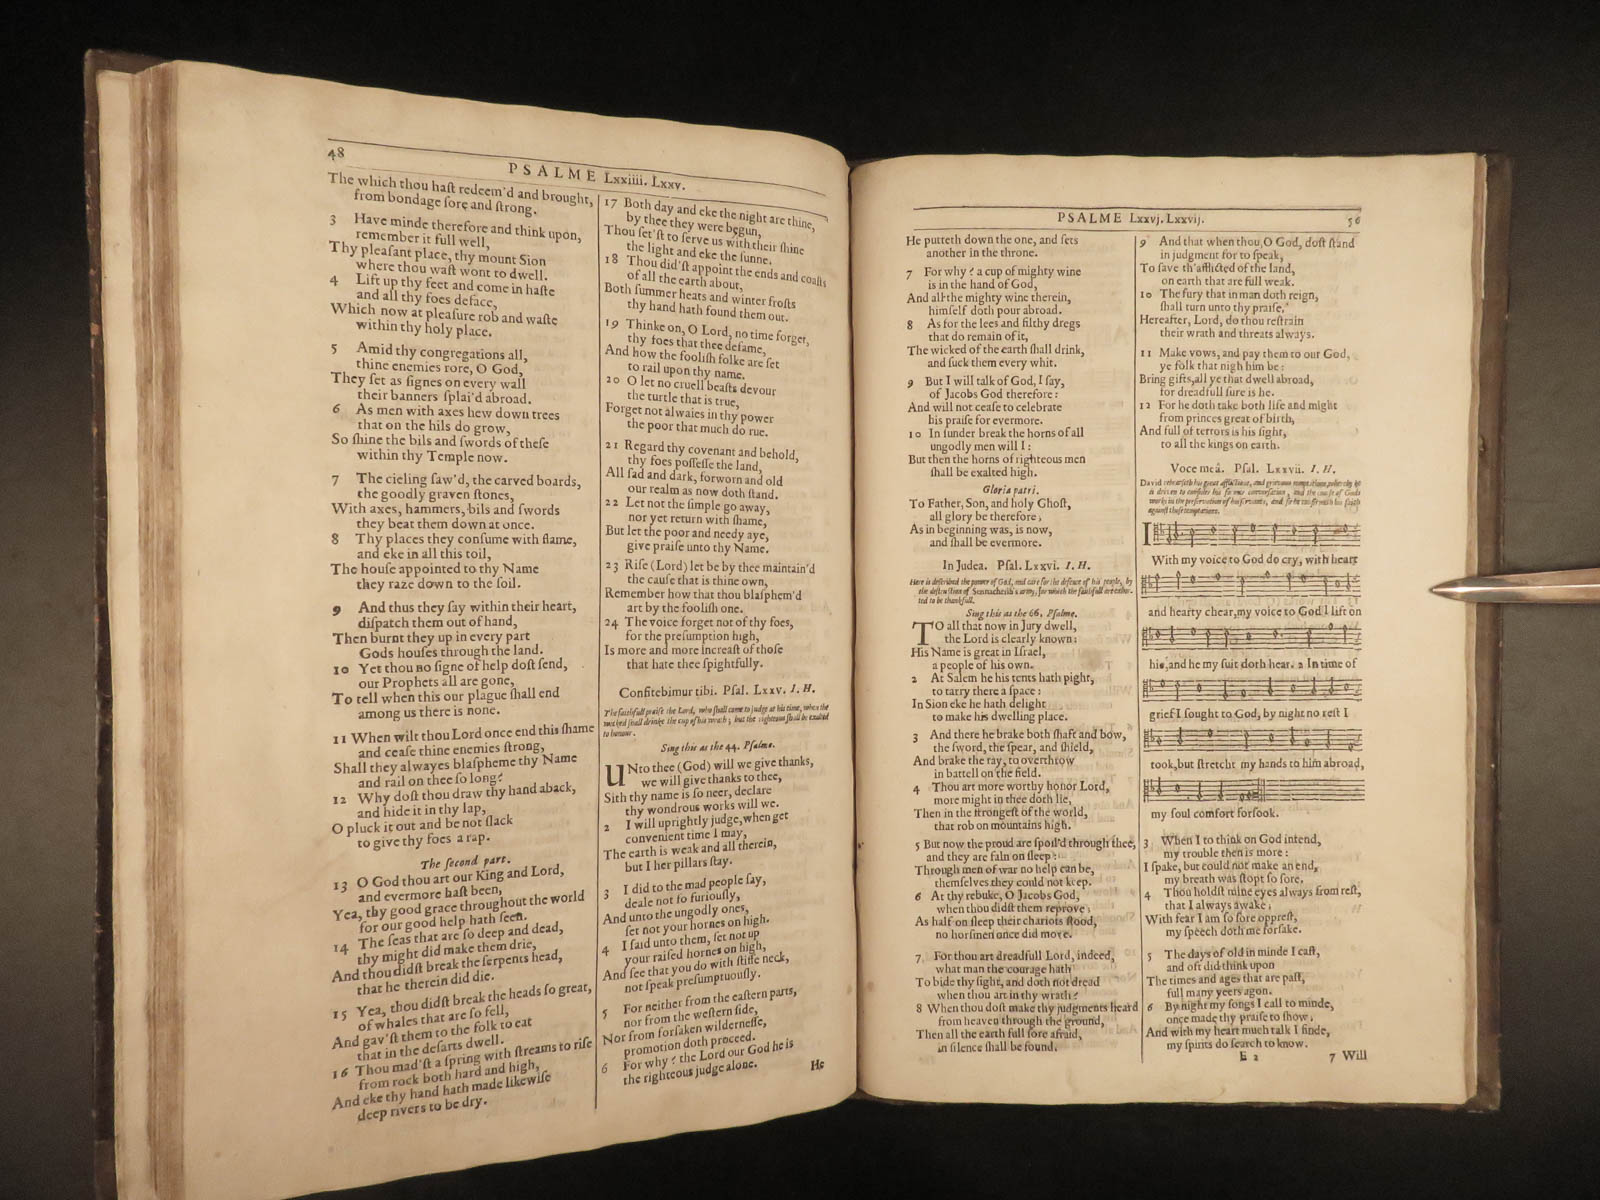 48
PSALME Lxxiiii. Lxxv.
The which thou haſt redeem'd and brought,
from bondage ſore and ſtrong.
3 Have minde therefore and think upon,
remember it full well,
Thy pleaſant place, thy mount Sion
where thou waſt wont to dwell.
4 Lift up thy feet and come in haſte
and all thy foes deface,
Which now at pleaſure rob and waſte
within thy holy place.
5 Amid thy congregations all,
thine enemies rore, O God,
They ſet as ſignes on every wall
their banners ſplai'd abroad.
6 As men with axes hew down trees
that on the hils do grow,
So ſhine the bils and ſwords of theſe
within thy Temple now.
7 The cieling ſaw'd, the carved boards,
the goodly graven ſtones,
With axes, hammers, bils and ſwords
they beat them down at once.
8 Thy places they conſume with flame,
and eke in all this toil,
The houſe appointed to thy Name
they raze down to the ſoil.
9 And thus they ſay within their heart,
diſpatch them out of hand,
Then burnt they up in every part
Gods houſes through the land.
10 Yet thou no ſigne of help doſt ſend,
our Prophets all are gone,
To tell when this our plague ſhall end
among us there is none.
11 When wilt thou Lord once end this ſhame
and ceaſe thine enemies ſtrong,
Shall they alwayes blaſpheme thy Name
and rail on thee ſo long?
12 Why doſt thou draw thy hand aback,
and hide it in thy lap,
O pluck it out and be not ſlack
to give thy foes a rap.
The ſecond part.
13 O God thou art our King and Lord,
and evermore haſt been,
Yea, thy good grace throughout the world
for our good help hath ſeen.
14 The ſeas that are ſo deep and dead,
thy might did make them drie,
And thou didſt break the ſerpents head,
that he therein did die.
15 Yea, thou didſt break the heads ſo great,
of whales that are ſo fell,
And gav'ſt them to the folk to eat
that in the deſarts dwell.
16 Thou mad'ſt a ſpring with ſtreams to riſe
from rock both hard and high,
And eke thy hand hath made likewiſe
deep rivers to be dry.
17 Both day and eke the night are thine,
by thee they were begun,
Thou ſet'ſt to ſerve us with their ſhine
the light and eke the ſunne.
18 Thou did'ſt appoint the ends and coaſts
of all the earth about,
Both ſummer heats and winter froſts
thy hand hath found them out.
19 Thinke on, O Lord, no time forget,
thy foes that thee defame,
And how the fooliſh folke are ſet
to rail upon thy name.
20 O let no cruell beaſts devour
the turtle that is true,
Forget not alwaies in thy power
the poor that much do rue.
21 Regard thy covenant and behold,
thy foes poſſeſſe the land,
All ſad and dark, forworn and old
our realm as now doth ſtand.
22 Let not the ſimple go away,
nor yet return with ſhame,
But let the poor and needy aye,
give praiſe unto thy Name.
23 Riſe (Lord) let be by thee maintain'd
the cauſe that is thine own,
Remember how that thou blaſphem'd
art by the fooliſh one.
24 The voice forget not of thy foes,
for the preſumption high,
Is more and more increaſt of thoſe
that hate thee ſpightfully.
Confitebimur tibi. Pſal. Lxxv. I. H.
The faithfull praiſe the Lord, who ſhall come to judge at his time, when the
wicked ſhall drinke the cup of his wrath; but the righteous ſhall be exalted
to honour.
Sing this as the 44. Pſalme.
UNto thee (God) will we give thanks,
we will give thanks to thee,
Sith thy name is ſo neer, declare
thy wondrous works will we.
2 I will uprightly judge, when get
convenient time I may,
The earth is weak and all therein,
but I her pillars ſtay.
3 I did to the mad people ſay,
deale not ſo furiouſly,
And unto the ungodly ones,
ſet not your hornes on high.
4 I ſaid unto them, ſet not up
your raiſed hornes on high,
And ſee that you do with ſtiffe neck,
not ſpeak preſumptuouſly.
5 For neither from the eaſtern parts,
nor from the weſtern ſide,
Nor from forſaken wilderneſſe,
promotion doth proceed.
6 For why? the Lord our God he is
the righteous judge alone.
He
PSALME Lxxvj. Lxxvij.
56
He putteth down the one, and ſets
another in the throne.
7 For why? a cup of mighty wine
is in the hand of God,
And all the mighty wine therein,
himſelf doth pour abroad.
8 As for the lees and filthy dregs
that do remain of it,
The wicked of the earth ſhall drink,
and ſuck them every whit.
9 But I will talk of God, I ſay,
of Jacobs God therefore:
And will not ceaſe to celebrate
his praiſe for evermore.
10 In ſunder break the horns of all
ungodly men will I:
But then the horns of righteous men
ſhall be exalted high.
Gloria patri.
To Father, Son, and holy Ghoſt,
all glory be therefore,
As in beginning was, is now,
and ſhall be evermore.
In Judea. Pſal. Lxxvi. I. H.
Here is deſcribed the power of God, and care for the defence of his people, by
the deſtruction of Sennacherib's army, for which the faithfull are exhor-
ted to be thankfull.
Sing this as the 66. Pſalme.
TO all that now in Jury dwell,
the Lord is clearly known:
His Name is great in Iſrael,
a people of his own.
2 At Salem he his tents hath pight,
to tarry there a ſpace:
In Sion eke he hath delight
to make his dwelling place.
3 And there he brake both ſhaft and bow,
the ſword, the ſpear, and ſhield,
And brake the ray, to overthrow
in battell on the field.
4 Thou art more worthy honor Lord,
more might in thee doth lie,
Then in the ſtrongeſt of the world,
that rob on mountains high.
5 But now the proud are ſpoil'd through thee,
and they are faln on ſleep:
Through men of war no help can be,
themſelves they could not keep.
6 At thy rebuke, O Jacobs God,
when thou didſt them reprove,
As half on ſleep their chariots ſtood,
no horſmen once did move.
7 For thou art dreadfull Lord, indeed,
what man the courage hath
To bide thy ſight, and doth not dread
when thou art in thy wrath?
8 When thou doſt make thy judgments heard
from heaven through the ground,
Then all the earth full ſore afraid,
in ſilence ſhall be found.
9 And that when thou, O God, doſt ſtand
in judgment for to ſpeak,
To ſave th'afflicted of the land,
on earth that are full weak.
10 The fury that in man doth reign,
ſhall turn unto thy praiſe,
Hereafter, Lord, do thou reſtrain
their wrath and threats always.
11 Make vows, and pay them to our God,
ye folk that nigh him be:
Bring gifts, all ye that dwell abroad,
for dreadfull ſure is he.
12 For he doth take both life and might
from princes great of birth,
And full of terrors is his ſight,
to all the kings on earth.
Voce meâ. Pſal. Lxxvii. I. H.
David rehearſeth his great afflictions, and grievous temptations, whereby he
is driven to conſider his former converſation, and the courſe of Gods
works in the preſervation of his ſervants, and ſo he confirmeth his faith
againſt theſe temptations.
I
With my voice to God do cry, with heart
and hearty chear, my voice to God I lift on
hie, and he my ſuit doth hear. 2 In time of
grief I ſought to God, by night no reſt I
took, but ſtretcht my hands to him abroad,
my ſoul comfort forſook.
3 When I to think on God intend,
my trouble then is more:
I ſpake, but could not make an end,
my breath was ſtopt ſo ſore.
4 Thou holdſt mine eyes always from reſt,
that I always awake,
With fear I am ſo ſore oppreſt,
my ſpeech doth me forſake.
5 The days of old in minde I caſt,
and oft did think upon
The times and ages that are paſt,
full many yeers agon.
6 By night my ſongs I call to minde,
once made thy praiſe to ſhow,
And with my heart much talk I finde,
my ſpirits do ſearch to know.
E 2
7 Will